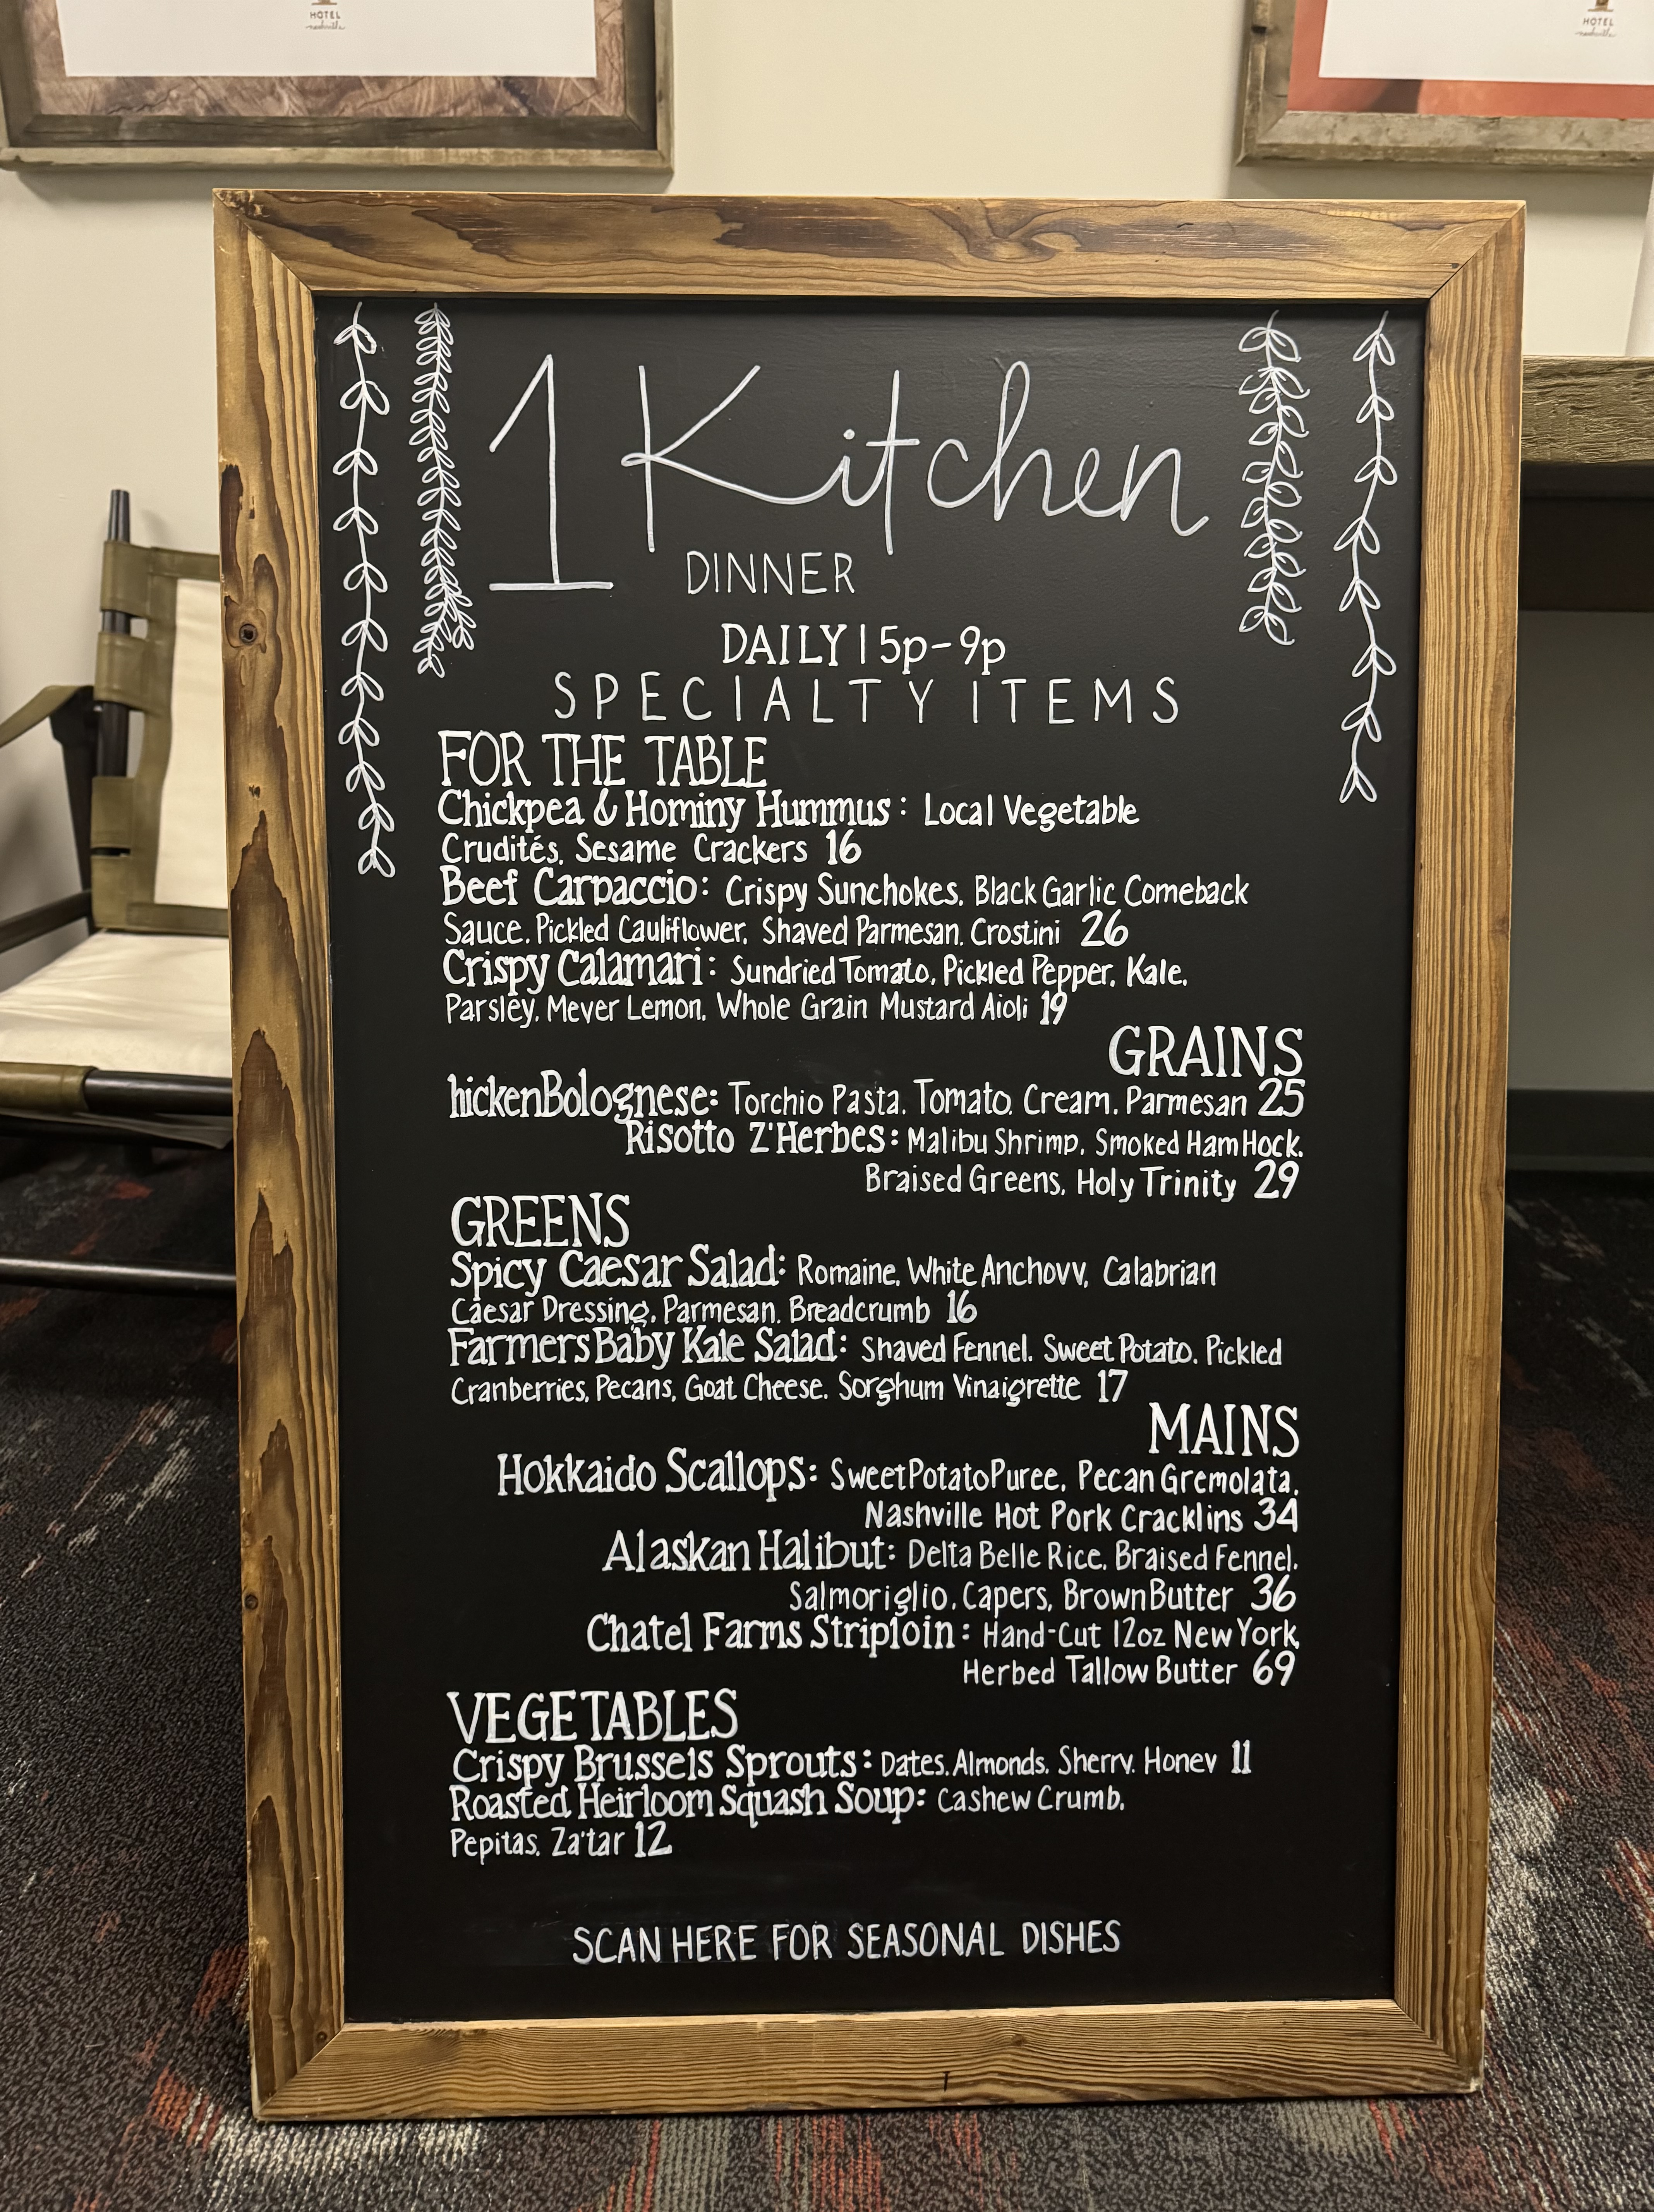 HOTEL
nashville
HOTEL
nashville
1 Kitchen
DINNER
DAILY | 5p-9p
SPECIALTY ITEMS
FOR THE TABLE
Chickpea & Hominy Hummus: Local Vegetable
Crudités, Sesame Crackers 16
Beef Carpaccio: Crispy Sunchokes, Black Garlic Comeback
Sauce, Pickled Cauliflower, Shaved Parmesan, Crostini 26
Crispy Calamari: Sundried Tomato, Pickled Pepper, Kale,
Parsley, Meyer Lemon, Whole Grain Mustard Aioli 19
GRAINS
hickenBolognese: Torchio Pasta, Tomato, Cream, Parmesan 25
Risotto Z'Herbes: Malibu Shrimp, Smoked Ham Hock,
Braised Greens, Holy Trinity 29
GREENS
Spicy Caesar Salad: Romaine, White Anchovy, Calabrian
Caesar Dressing, Parmesan, Breadcrumb 16
Farmers Baby Kale Salad: Shaved Fennel, Sweet Potato, Pickled
Cranberries, Pecans, Goat Cheese, Sorghum Vinaigrette 17
MAINS
Hokkaido Scallops: Sweet Potato Puree, Pecan Gremolata,
Nashville Hot Pork Cracklins 34
Alaskan Halibut: Delta Belle Rice, Braised Fennel,
Salmoriglio, Capers, Brown Butter 36
Chatel Farms Striploin: Hand-Cut 12oz New York,
Herbed Tallow Butter 69
VEGETABLES
Crispy Brussels Sprouts: Dates, Almonds, Sherry, Honey 11
Roasted Heirloom Squash Soup: Cashew Crumb,
Pepitas, Za'tar 12
SCAN HERE FOR SEASONAL DISHES